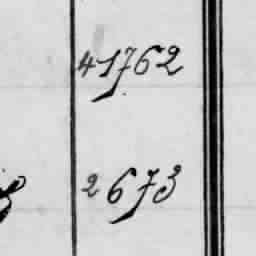 41762
2673